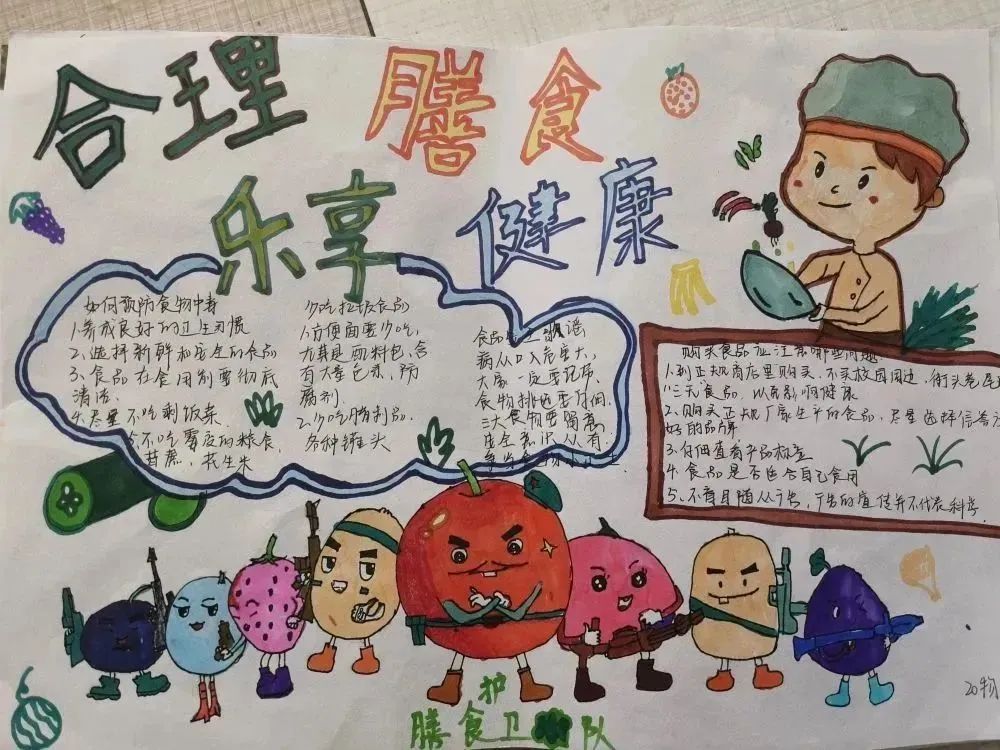 合理 膳食
乐享 健康
如何预防食物中毒
1.养成良好的卫生习惯
2、选择新鲜和安全的食品
3、食品在食用前要彻底
清洁.
4.尽量不吃剩饭菜.
5.不吃霉变的粮食
甘蔗、花生米
少吃垃圾食品
1.方便面要少吃,
尤其是面料包,含
有大量色素,防
腐剂.
2、少吃腌制品.
各种罐头
食品 歌谣
病从口入危害大,
大家一定要记牢.
食物
三大食物要隔离
购买食品应注意哪些问题
1.到正规商店里购买、不买校园周边、街头巷尾
"三无"食品. 以 健康
2.购买正规厂家生产的食品、尽量选择信誉
好的品牌.
3.仔细查看产品标签
4.食品是否适合自己食用
5、不盲目随从广告,广告的宣传并不代表科学.
护
膳食卫 队
20物